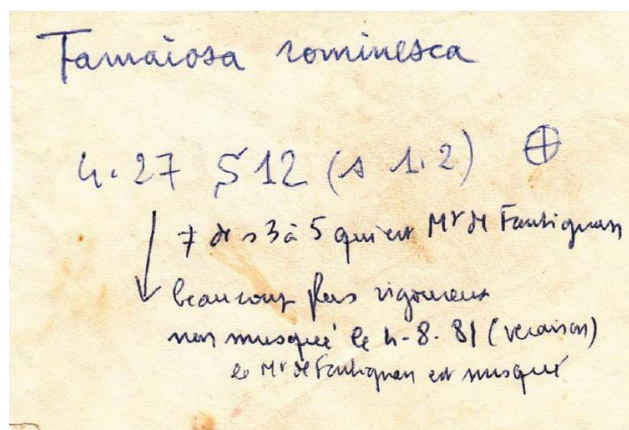 Tamaiosa rominesca
4.27 S 12 (s 1.2) ⊕
≠ de s 3 à 5 qui est Mt de Fontignan
beaucoup plus vigoureux
non musqué le 4-8-81 (veraison)
le Mt de Fontignan est musqué